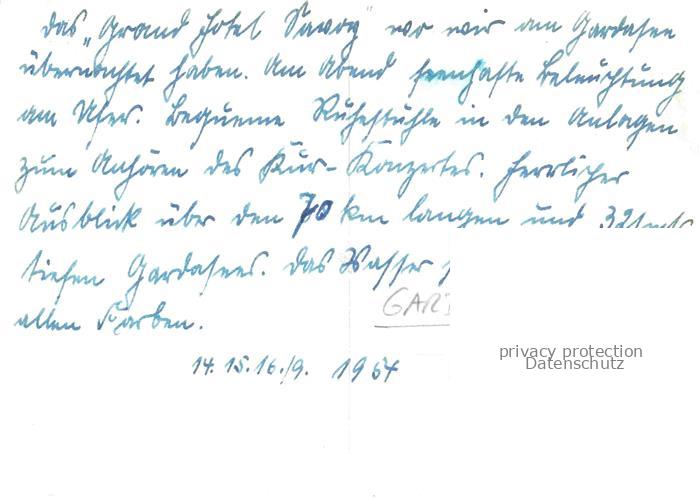 das „Grand Hotel Savoy" wo wir am Gardasee
übernachtet haben. Am Abend feenhafte Beleuchtung
am Ufer. Bequeme Ruhestühle in den Anlagen
zum Anhören des Kur-Konzertes. Herrlicher
Ausblick über den 70 km langen und 321 mtr
tiefen Gardasees. Das Wasser
allen Farben.
14. 15. 16./9. 1954
privacy protection
Datenschutz